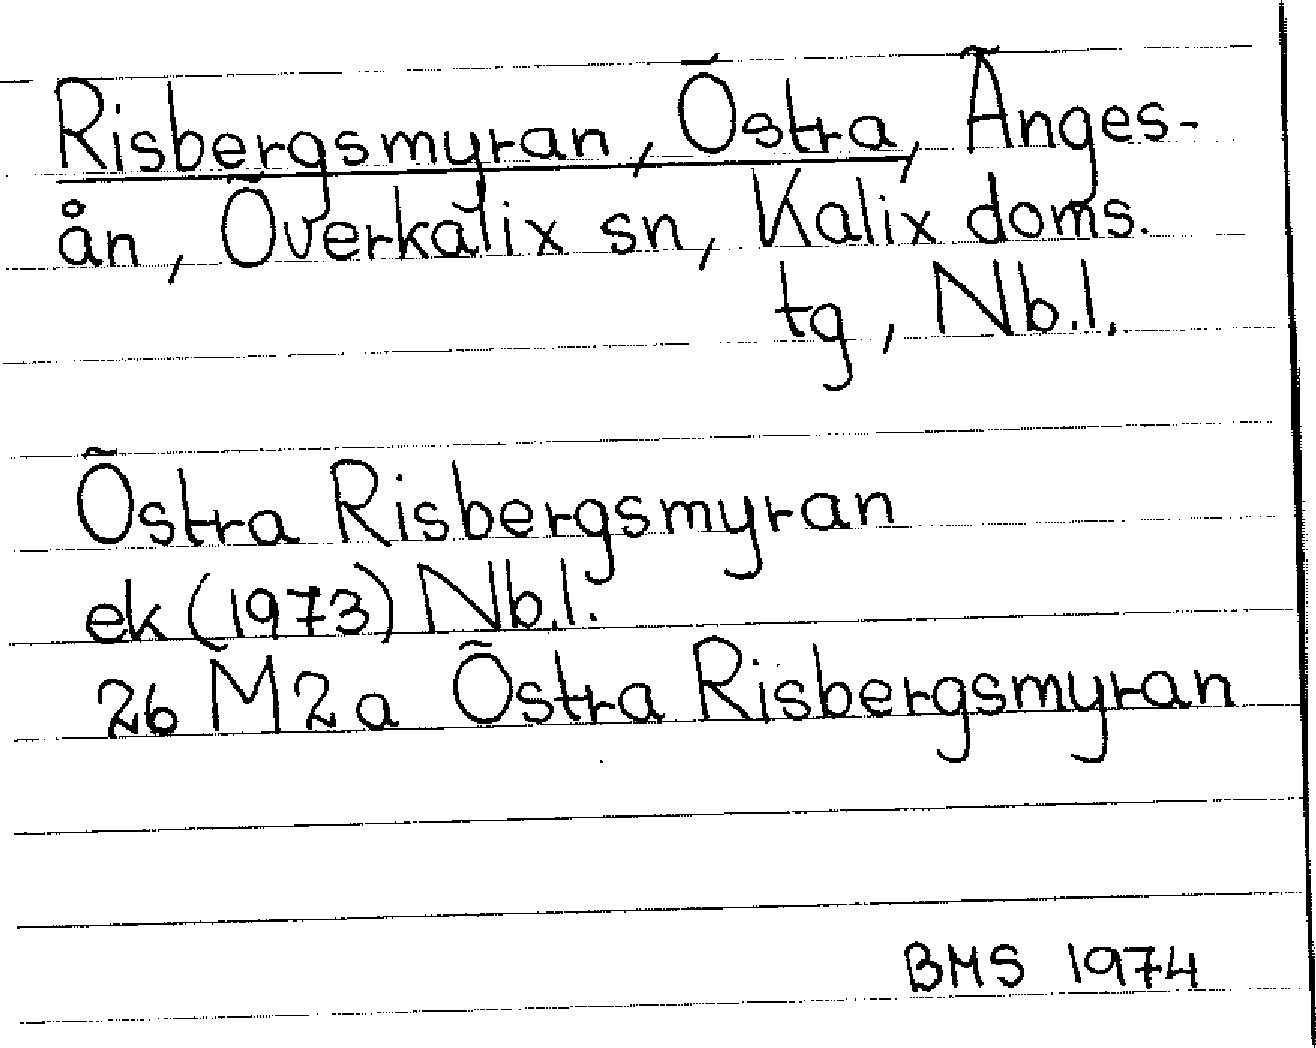 Risbergsmyran, Östra, Änges-
ån, Överkalix sn, Kalix doms.
tg, Nb.l.
Östra Risbergsmyran
ek (1973) Nb.l.
26 M 2a Östra Risbergsmyran
BMS 1974